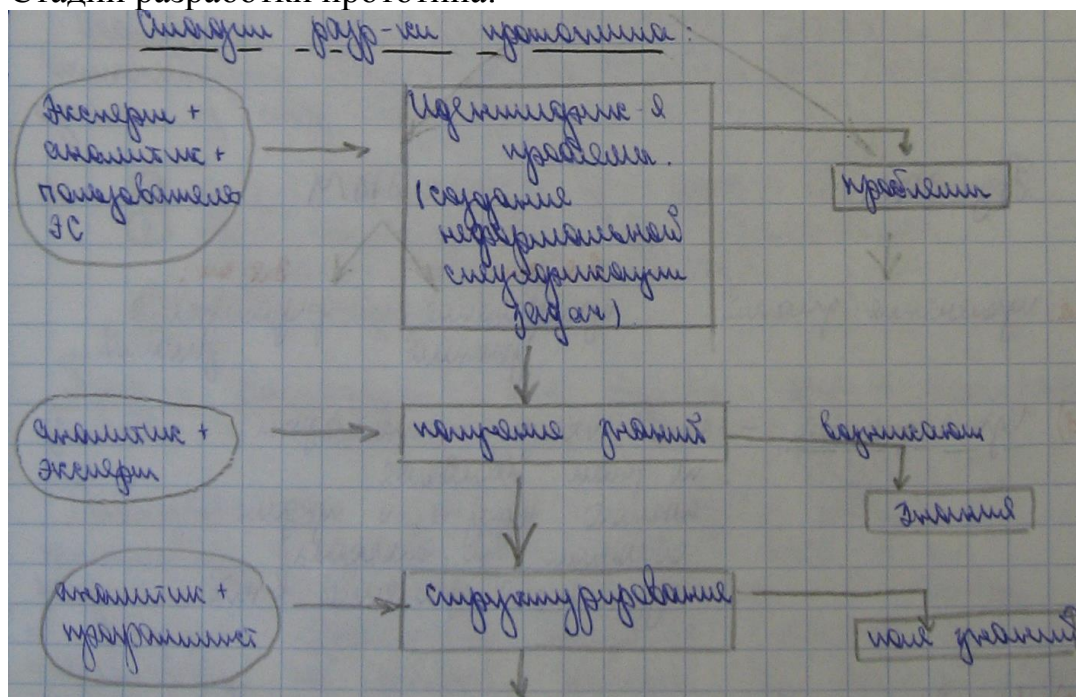 Стадии разработки прототипа.
Стадии разр-ки прототипа:
Эксперт +
аналитик +
пользователь
ЭС
Идентифик-я
проблемы.
(создание
неформальной
спецификации
задач)
проблемы
аналитик +
эксперт
получение знаний
возникают
знания
аналитик +
программист
структурирование
поля знаний